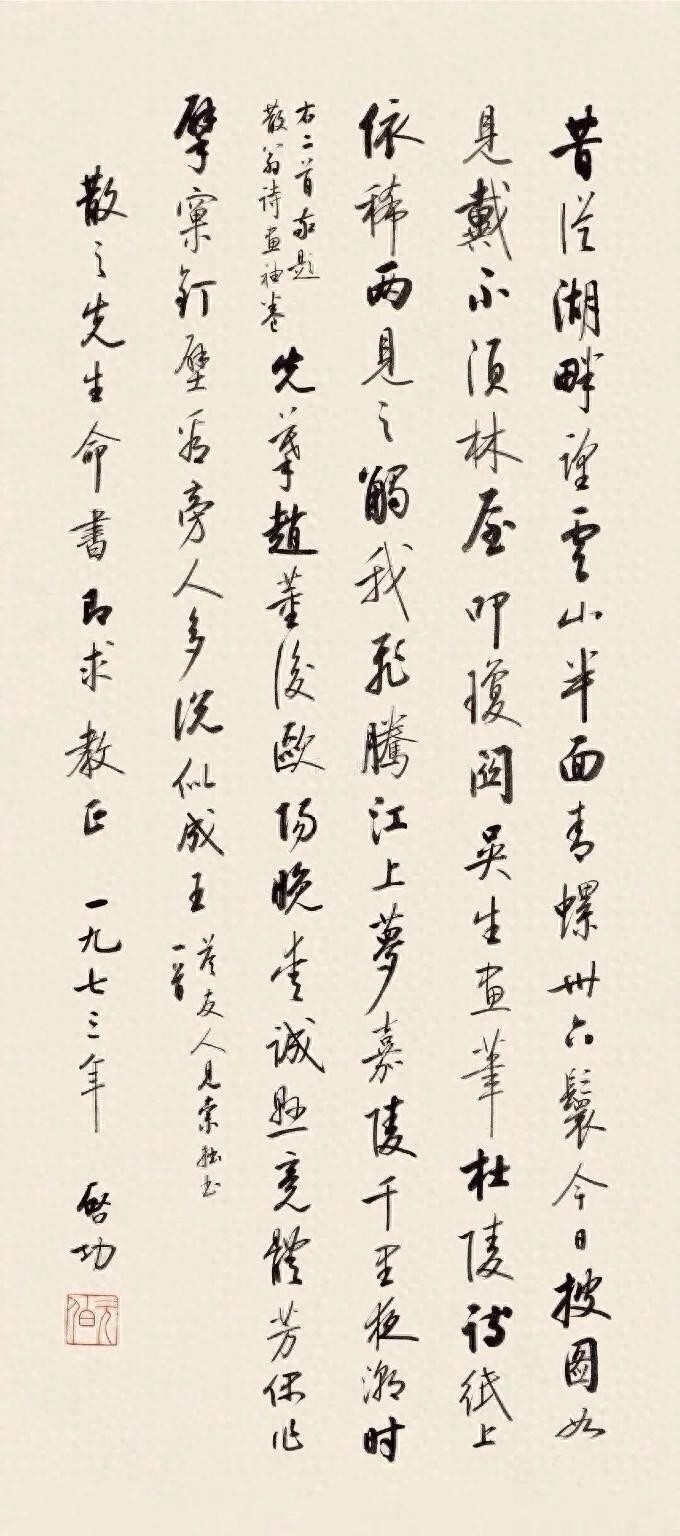 昔從湖畔望雲山半面青螺卅六鬟今日披圖如
見戴不須林屋叩瓊關吳生畫筆杜陵詩紙上
依稀两見之觸我飛騰江上夢嘉陵千里夜潮时
右二首敬題
散翁诗畫袖卷
先摹趙董後歐陽晚愛誠懸竟體芳偶作
擘窠釘壁看旁人多说似成王
答友人見索拙书
一首
散之先生命書即求教正 一九七三年 啓功
元白